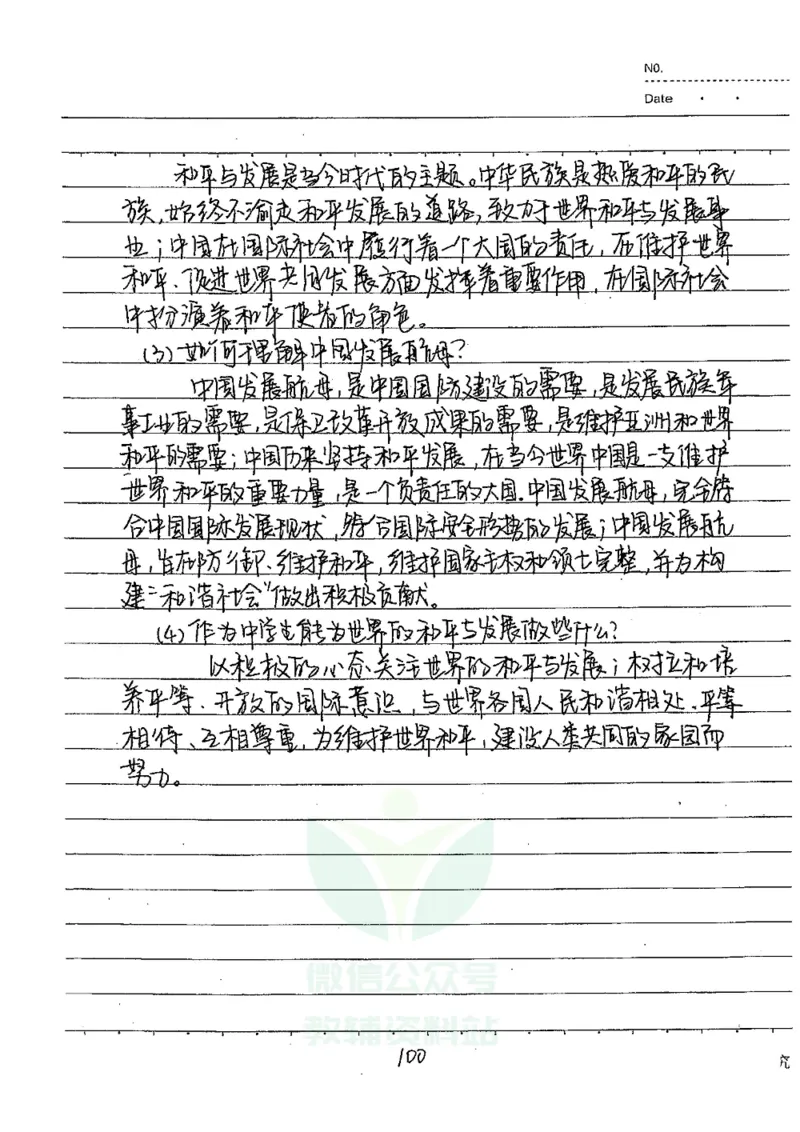 NO.
Date
和平与发展是当今时代的主题。中华民族是热爱和平的民
族,始终不渝走和平发展的道路,致力于世界和平与发展事
业;中国在国际社会中履行着一个大国的责任,在维护世界
和平、促进世界共同发展方面发挥着重要作用,在国际社会
中扮演着和平使者的角色。
(3)如何理解中国发展航母?
中国发展航母,是中国国防建设的需要,是发展民族军
事工业的需要,是保卫改革开放成果的需要,是维护亚洲和世界
和平的需要;中国历来坚持和平发展,在当今世界中国是一支维护
世界和平的重要力量,是一个负责任的大国。中国发展航母,完全符
合中国国际发展现状,符合国际安全形势的发展;中国发展航
母,旨在防御、维护和平,维护国家主权和领土完整,并为构
建“和谐社会”做出积极贡献。
(4)作为中学生能为世界的和平与发展做些什么?
以积极的心态关注世界的和平与发展;树立和培
养平等、开放的国际意识,与世界各国人民和谐相处、平等
相待、互相尊重,为维护世界和平,建设人类共同的家园而
努力。
微信公众号
教辅资料站
100